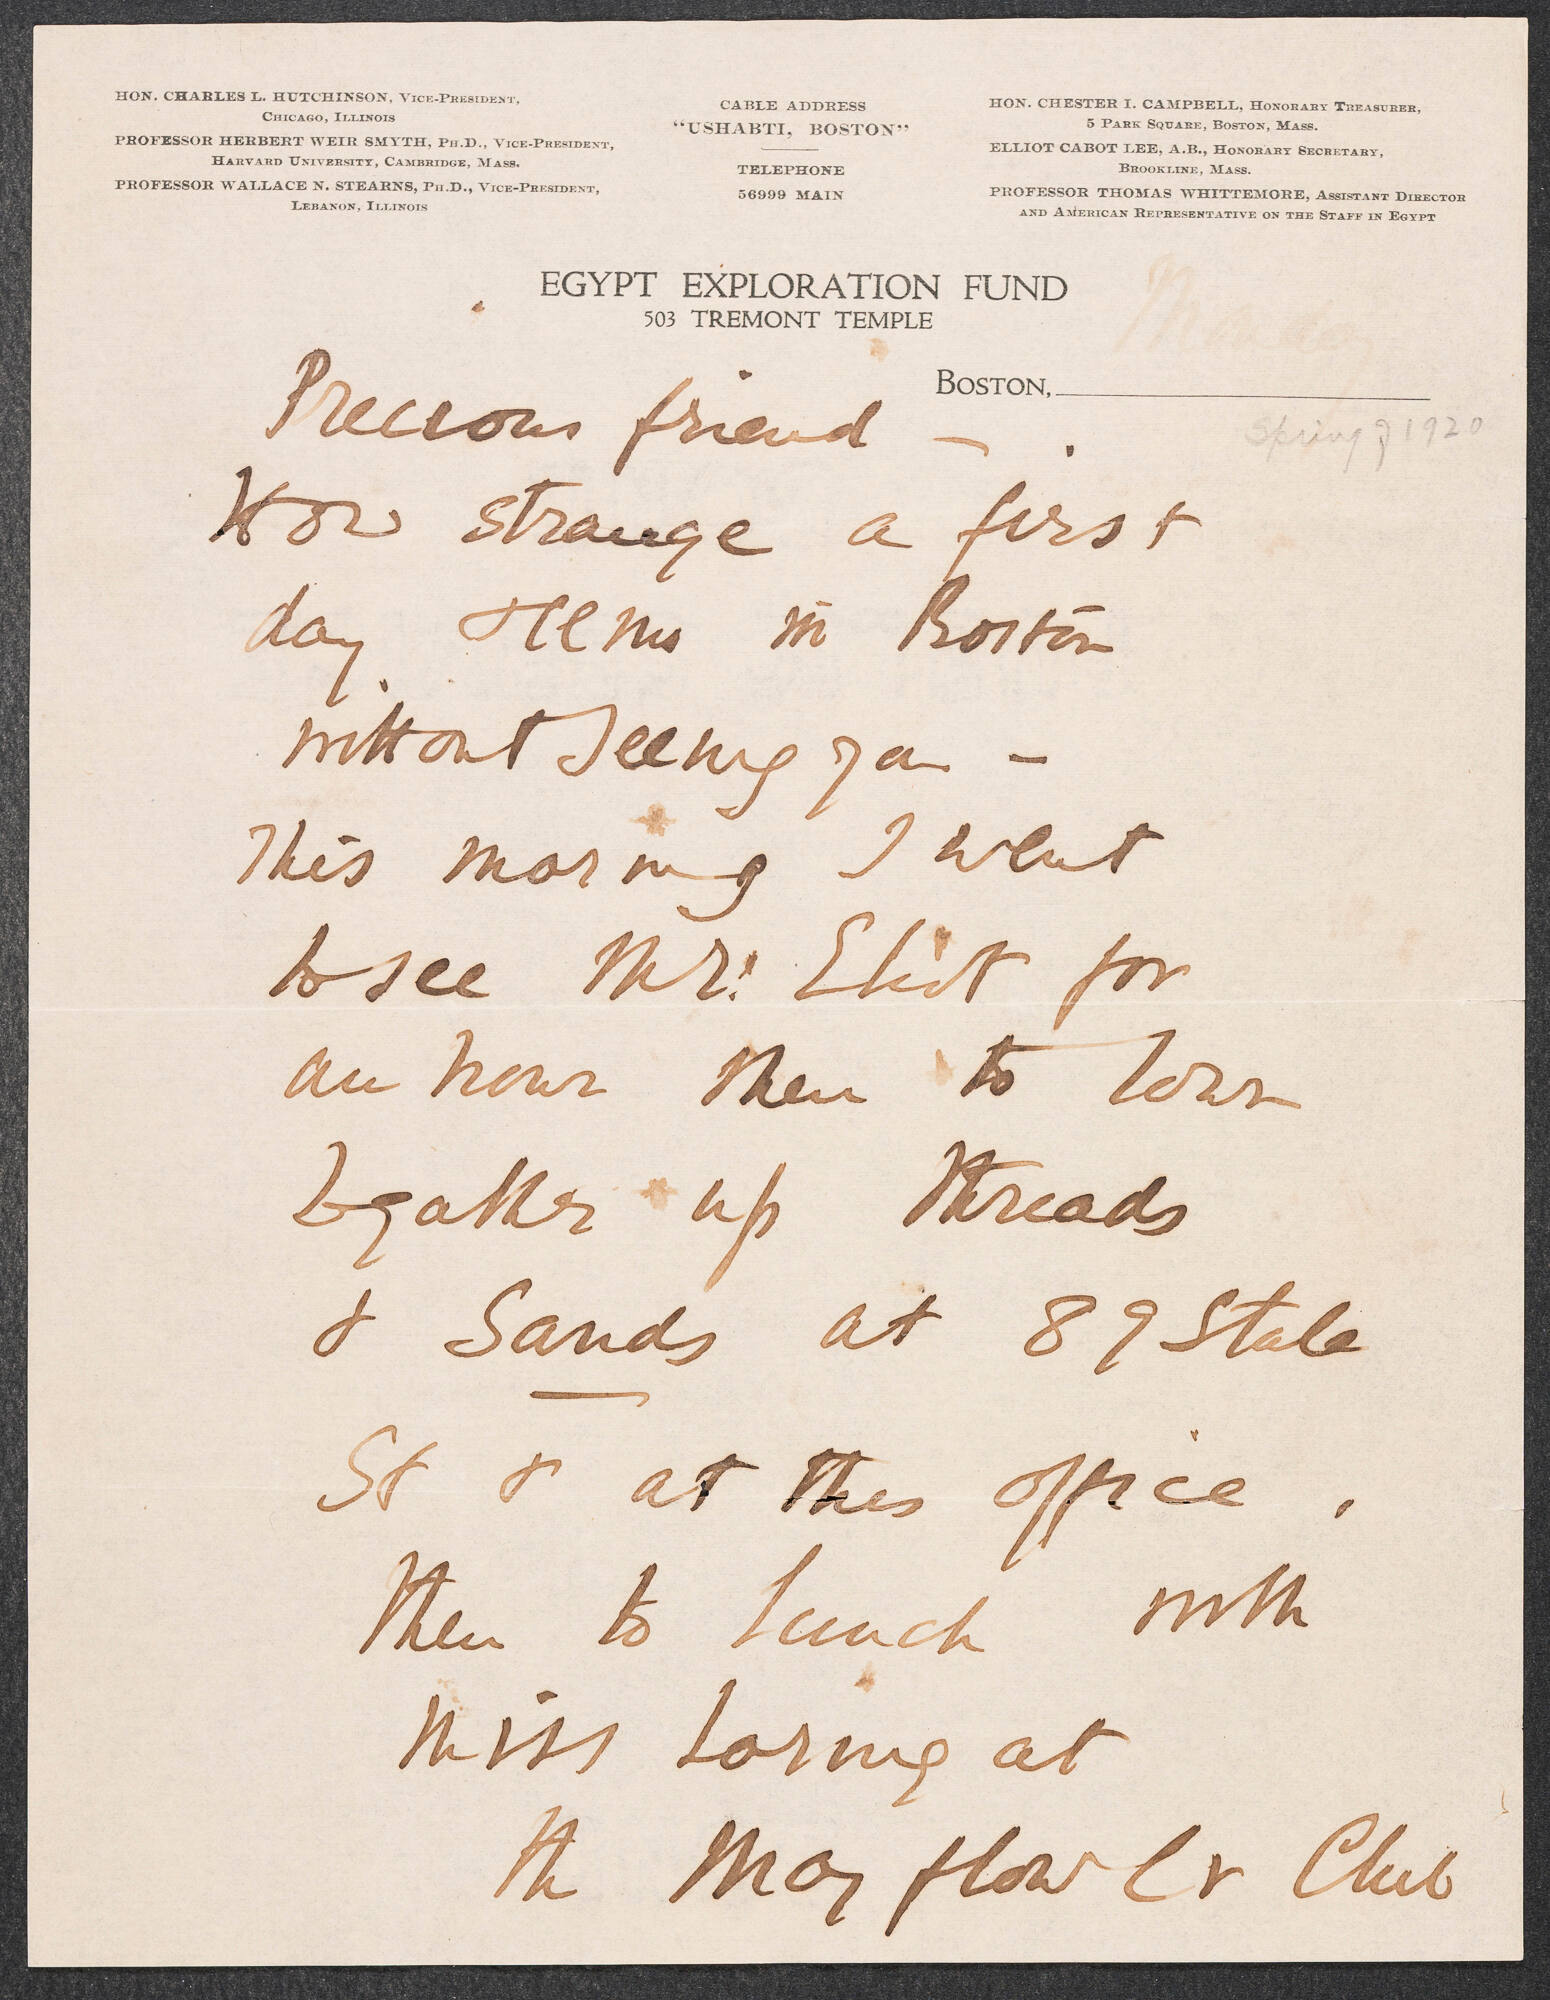 HON. CHARLES L. HUTCHINSON, VICE-PRESIDENT,
CHICAGO, ILLINOIS
PROFESSOR HERBERT WEIR SMYTH, PH.D., VICE-PRESIDENT,
HARVARD UNIVERSITY, CAMBRIDGE, MASS.
PROFESSOR WALLACE N. STEARNS, PH.D., VICE-PRESIDENT,
LEBANON, ILLINOIS
CABLE ADDRESS
"USHABTI, BOSTON"
TELEPHONE
56999 MAIN
HON. CHESTER I. CAMPBELL, HONORARY TREASURER,
5 PARK SQUARE, BOSTON, MASS.
ELLIOT CABOT LEE, A.B., HONORARY SECRETARY,
BROOKLINE, MASS.
PROFESSOR THOMAS WHITTEMORE, ASSISTANT DIRECTOR
AND AMERICAN REPRESENTATIVE ON THE STAFF IN EGYPT
EGYPT EXPLORATION FUND
503 TREMONT TEMPLE
Monday
BOSTON,
Spring of 1920
Precious friend –
How strange a first
day seems in Boston
without seeing you –
This morning I went
to see Mr. Eliot for
an hour then to town
to gather up threads
& Sands at 89 State
St & at this office.
Then to lunch with
Miss Loring at
the Mayflower Club